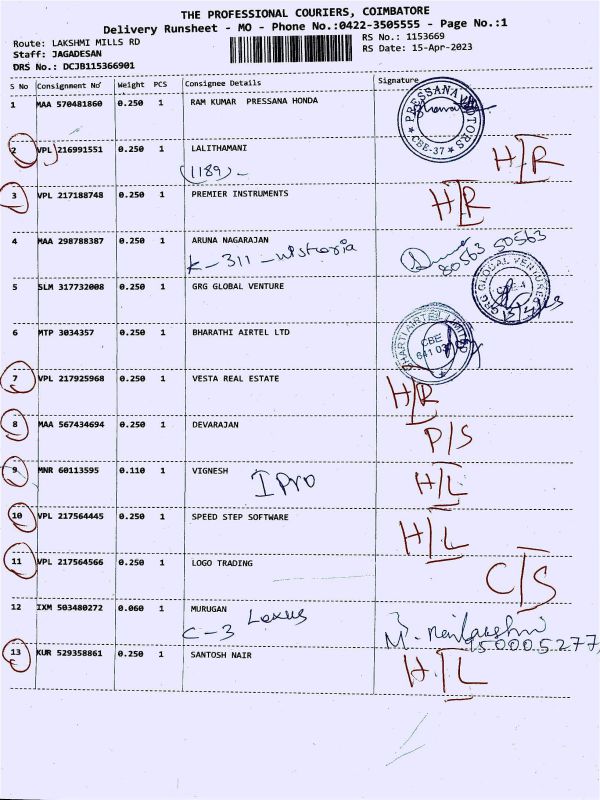 THE PROFESSIONAL COURIERS, COIMBATORE
Delivery Runsheet - MO - Phone No.:0422-3505555 - Page No.:1
Route: LAKSHMI MILLS RD
RS No.: 1153669
Staff: JAGADESAN
RS Date: 15-Apr-2023
DRS No.: DCJB115366901
S No Consignment No Weight PCS Consignee Details Signature
1 MAA 570481860 0.250 1 RAM KUMAR PRESSANA HONDA
PRESSANA MOTORS
CBE-37
2 VPL 216991551 0.250 1 LALITHAMANI
(1189) -
H/R
3 VPL 217188748 0.250 1 PREMIER INSTRUMENTS
H/R
4 MAA 298788387 0.250 1 ARUNA NAGARAJAN
K-311-wistoria
80563 50563
5 SLM 317732008 0.250 1 GRG GLOBAL VENTURE
GRG GLOBAL VENTURES
6 MTP 3034357 0.250 1 BHARATHI AIRTEL LTD
BHARTI AIRTEL LIMITED
CBE
641 037
7 VPL 217925968 0.250 1 VESTA REAL ESTATE
H/R
8 MAA 567434694 0.250 1 DEVARAJAN
P/S
9 MNR 60113595 0.110 1 VIGNESH
I Pro
H/L
10 VPL 217564445 0.250 1 SPEED STEP SOFTWARE
H/L
11 VPL 217564566 0.250 1 LOGO TRADING
C/S
12 IXM 503480272 0.060 1 MURUGAN
C-3 Lexus
13 KUR 529358861 0.250 1 SANTOSH NAIR
H/L